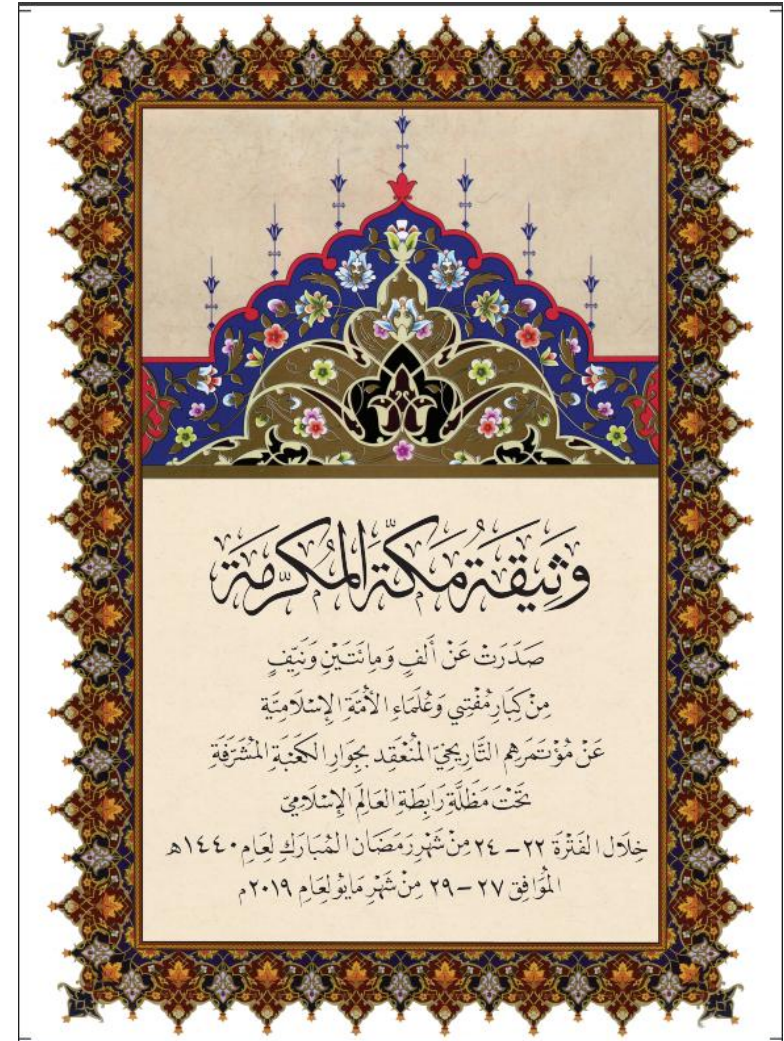 وَثِيقَةُ مَكَّةَ المُكَرَّمَةِ
صَدَرَتْ عَنْ أَلفٍ وَمِائَتَيْنِ وَنَيِّفٍ
مِنْ كِبَارِ مُفْتِي وَعُلَمَاءِ الأُمَّةِ الإِسْلَامِيَّةِ
عَنْ مُؤْتَمَرِهِم التَّارِيخِيّ المُنْعَقِد بِجِوَارِ الكَعْبَةِ المُشَرَّفَةِ
تَحْتَ مَظَلَّةِ رَابِطَةِ العَالَمِ الإِسْلَامِيّ
خِلَال الفَتْرَةِ ٢٢ – ٢٤ مِنْ شَهْرِ رَمَضَان المُبَارَكِ لِعَامِ ١٤٤٠هـ
المُوَافِق ٢٧ – ٢٩ مِنْ شَهْرِ مَايُو لِعَامِ ٢٠١٩م